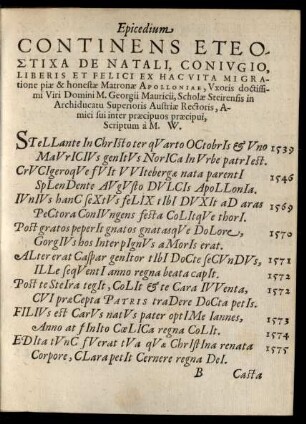 Epicedium
CONTINENS ETEO-
STIXA DE NATALI, CONIVGIO,
LIBERIS ET FELICI EX HAC VITA MIGRA-
tione piæ & honestæ Matronæ APOLLONIAE, Vxoris doctissi-
mi Viri Domini M. Georgii Mauricii, Scholæ Steirensis in
Archiducatu Superioris Austriæ Rectoris, A-
mici sui inter præcipuos præcipui,
Scriptum à M. W.
STeLLante In ChrIsto ter qVarto OCtobrIs & Vno 1539
MaVrICIVs genItVs NorICa In Vrbe patrI est.
CrVCIgeroqVe fVIt VVItebergæ nata parentI 1546
SpLenDente AVgVsto DVLCIs ApoLLonIa.
IVnIVs hanC sextVs feLIX tIbI DVXIt aD aras 1569
PeCtora ConIVngens festa CoLItqVe thorI.
Post gratos peperIt gnatos gnatasqVe DoLore, 1570
GorgIVs hos InterpIgnVs aMorIs erat.
ALter erat Caspar genItor tIbI DoCte seCVnDVs, 1571
ILLe seqVentI anno regna beata capIt. 1572
Post te SteIra tegIt, CoLIt & te Cara IVVenta, 1572
CVI præCepta PATRIS traDere DoCta petIs.
FILIVs est CarVs natVs pater optIMe Iannes, 1573
Anno at fInIto CæLICa regna CoLIt. 1574
EDIta tVnC fVerat tVa qVæ ChrIstIna renata 1575
Corpore, CLara petIt Cernere regna DeI.
B Casta